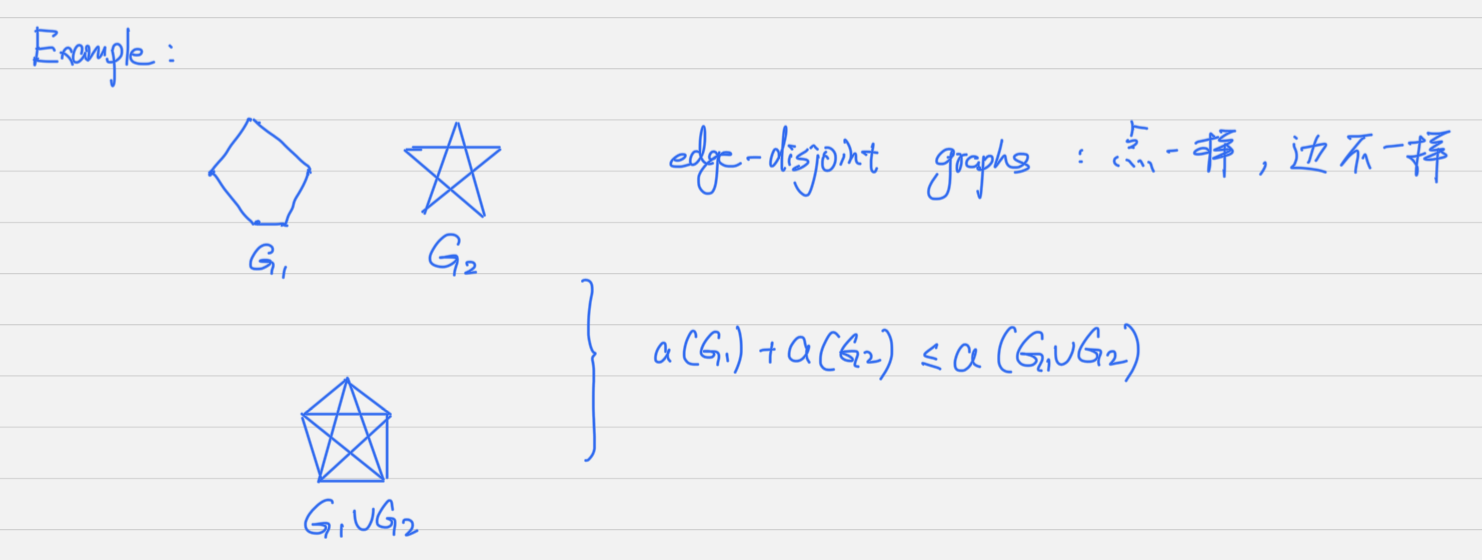 Example:
G₁
G₂
edge-disjoint graphs : 点一样, 边不一样
a(G₁) + a(G₂) ≤ a(G₁∪G₂)
G₁∪G₂